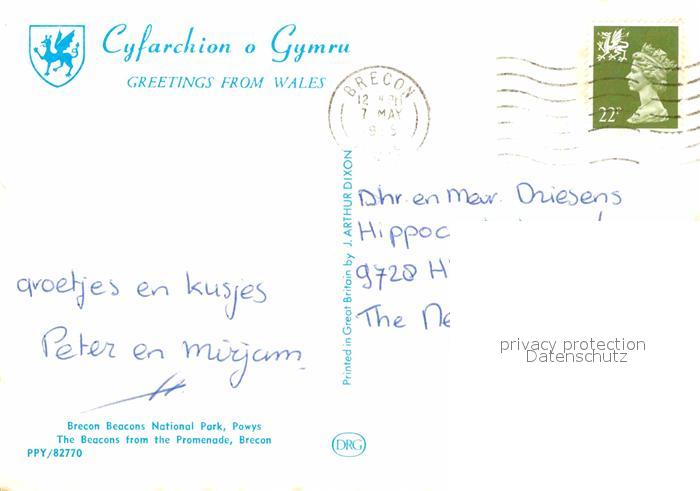 Cyfarchion o Gymru
GREETINGS FROM WALES
BRECON
7 MAY
22P
Printed in Great Britain by J. ARTHUR DIXON
Dhr. en Mevr. Driesens
Hippoc
9728 H
The Ne
privacy protection
Datenschutz
groetjes en kusjes
Peter en Mirjam
Brecon Beacons National Park, Powys
The Beacons from the Promenade, Brecon
PPY/82770
DRG